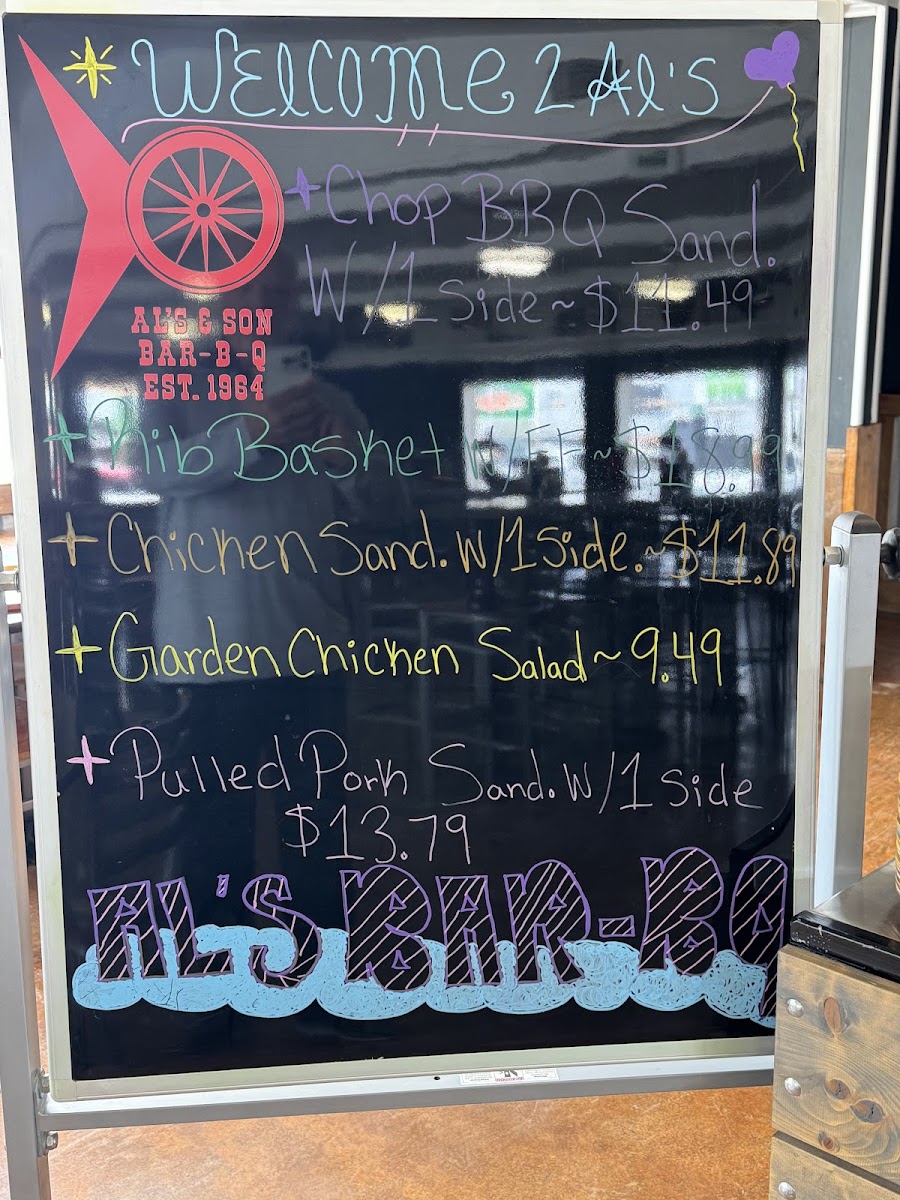 Welcome 2 Al's
AL'S & SON
BAR-B-Q
EST. 1964
Chop BBQ Sand.
W/1 Side ~ $11.49
Rib Basket W/FF ~ $18.99
Chicken Sand. W/1 Side. ~ $11.89
Garden Chicken Salad ~ 9.49
Pulled Pork Sand. W/1 Side
$13.79
AL'S BAR-BQ